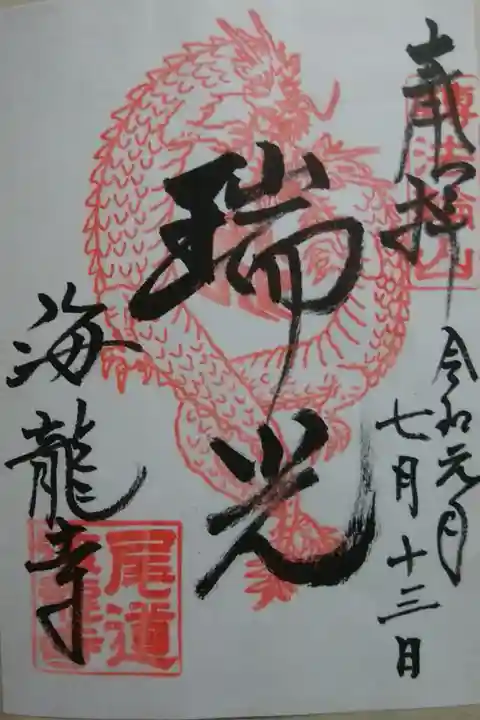 奉拝
轉法輪山
令和元年
七月十三日
瑞光
海龍寺
尾道